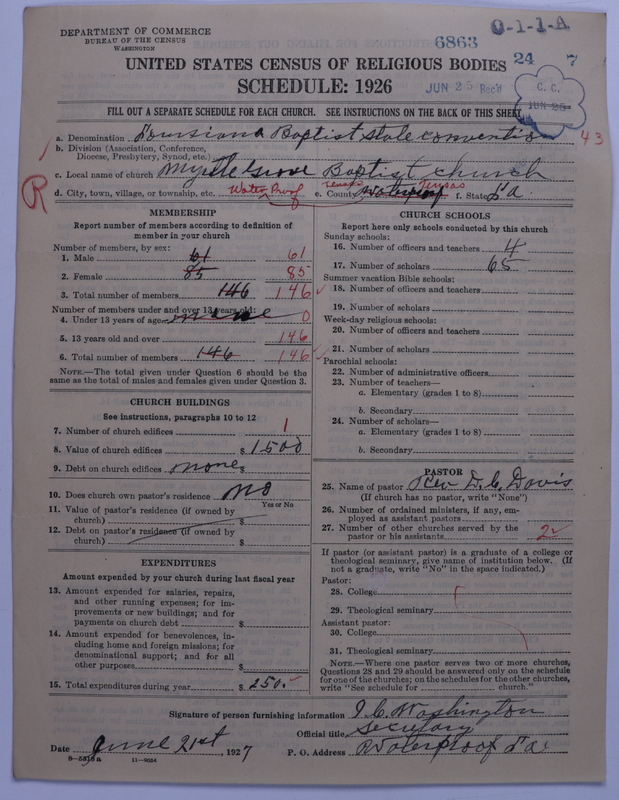 DEPARTMENT OF COMMERCE
BUREAU OF THE CENSUS
WASHINGTON
6863
0-1-1-A
UNITED STATES CENSUS OF RELIGIOUS BODIES
24 7
SCHEDULE: 1926
JUN 25 Rec'd
C. C.
JUN 25
FILL OUT A SEPARATE SCHEDULE FOR EACH CHURCH. SEE INSTRUCTIONS ON THE BACK OF THIS SHEET
a. Denomination Louisiana Baptist state conventio
43
b. Division (Association, Conference,
Diocese, Presbytery, Synod, etc.)
c. Local name of church Myrtle Grove Baptist church
R
d. City, town, village, or township, etc. Water Proof e. County Tensas f. State La
MEMBERSHIP
Report number of members according to definition of
member in your church
Number of members, by sex:
1. Male 61 61
2. Female 85 85
3. Total number of members 146 146
Number of members under and over 13 years old:
4. Under 13 years of age none 0
5. 13 years old and over 146
6. Total number of members 146 146
NOTE.—The total given under Question 6 should be the
same as the total of males and females given under Question 3.
CHURCH BUILDINGS
See instructions, paragraphs 10 to 12
7. Number of church edifices 1
8. Value of church edifices $ 1500
9. Debt on church edifices none $
10. Does church own pastor's residence No
Yes or No
11. Value of pastor's residence (if owned by
church) $
12. Debt on pastor's residence (if owned by
church) $
EXPENDITURES
Amount expended by your church during last fiscal year
13. Amount expended for salaries, repairs,
and other running expenses; for im-
provements or new buildings; and for
payments on church debt $
14. Amount expended for benevolences, in-
cluding home and foreign missions; for
denominational support; and for all
other purposes $
15. Total expenditures during year $ 250.
CHURCH SCHOOLS
Report here only schools conducted by this church
Sunday schools:
16. Number of officers and teachers 4
17. Number of scholars 65
Summer vacation Bible schools:
18. Number of officers and teachers
19. Number of scholars
Week-day religious schools:
20. Number of officers and teachers
21. Number of scholars
Parochial schools:
22. Number of administrative officers
23. Number of teachers—
a. Elementary (grades 1 to 8)
b. Secondary
24. Number of scholars—
a. Elementary (grades 1 to 8)
b. Secondary
PASTOR
25. Name of pastor Rev D. C. Davis
(If church has no pastor, write "None")
26. Number of ordained ministers, if any, em-
ployed as assistant pastors
27. Number of other churches served by the
pastor or his assistants 2
If pastor (or assistant pastor) is a graduate of a college or
theological seminary, give name of institution below. (If
not a graduate, write "No" in the space indicated.)
Pastor:
28. College
29. Theological seminary
Assistant pastor:
30. College
31. Theological seminary
NOTE.—Where one pastor serves two or more churches,
Questions 28 and 29 should be answered only on the schedule
for one of the churches; on the schedules for the other churches,
write "See schedule for church."
Signature of person furnishing information I. C. Washington
Official title Secretary
Date June 21st, 1927 P. O. Address Waterproof La.
8-5318a 11-9054